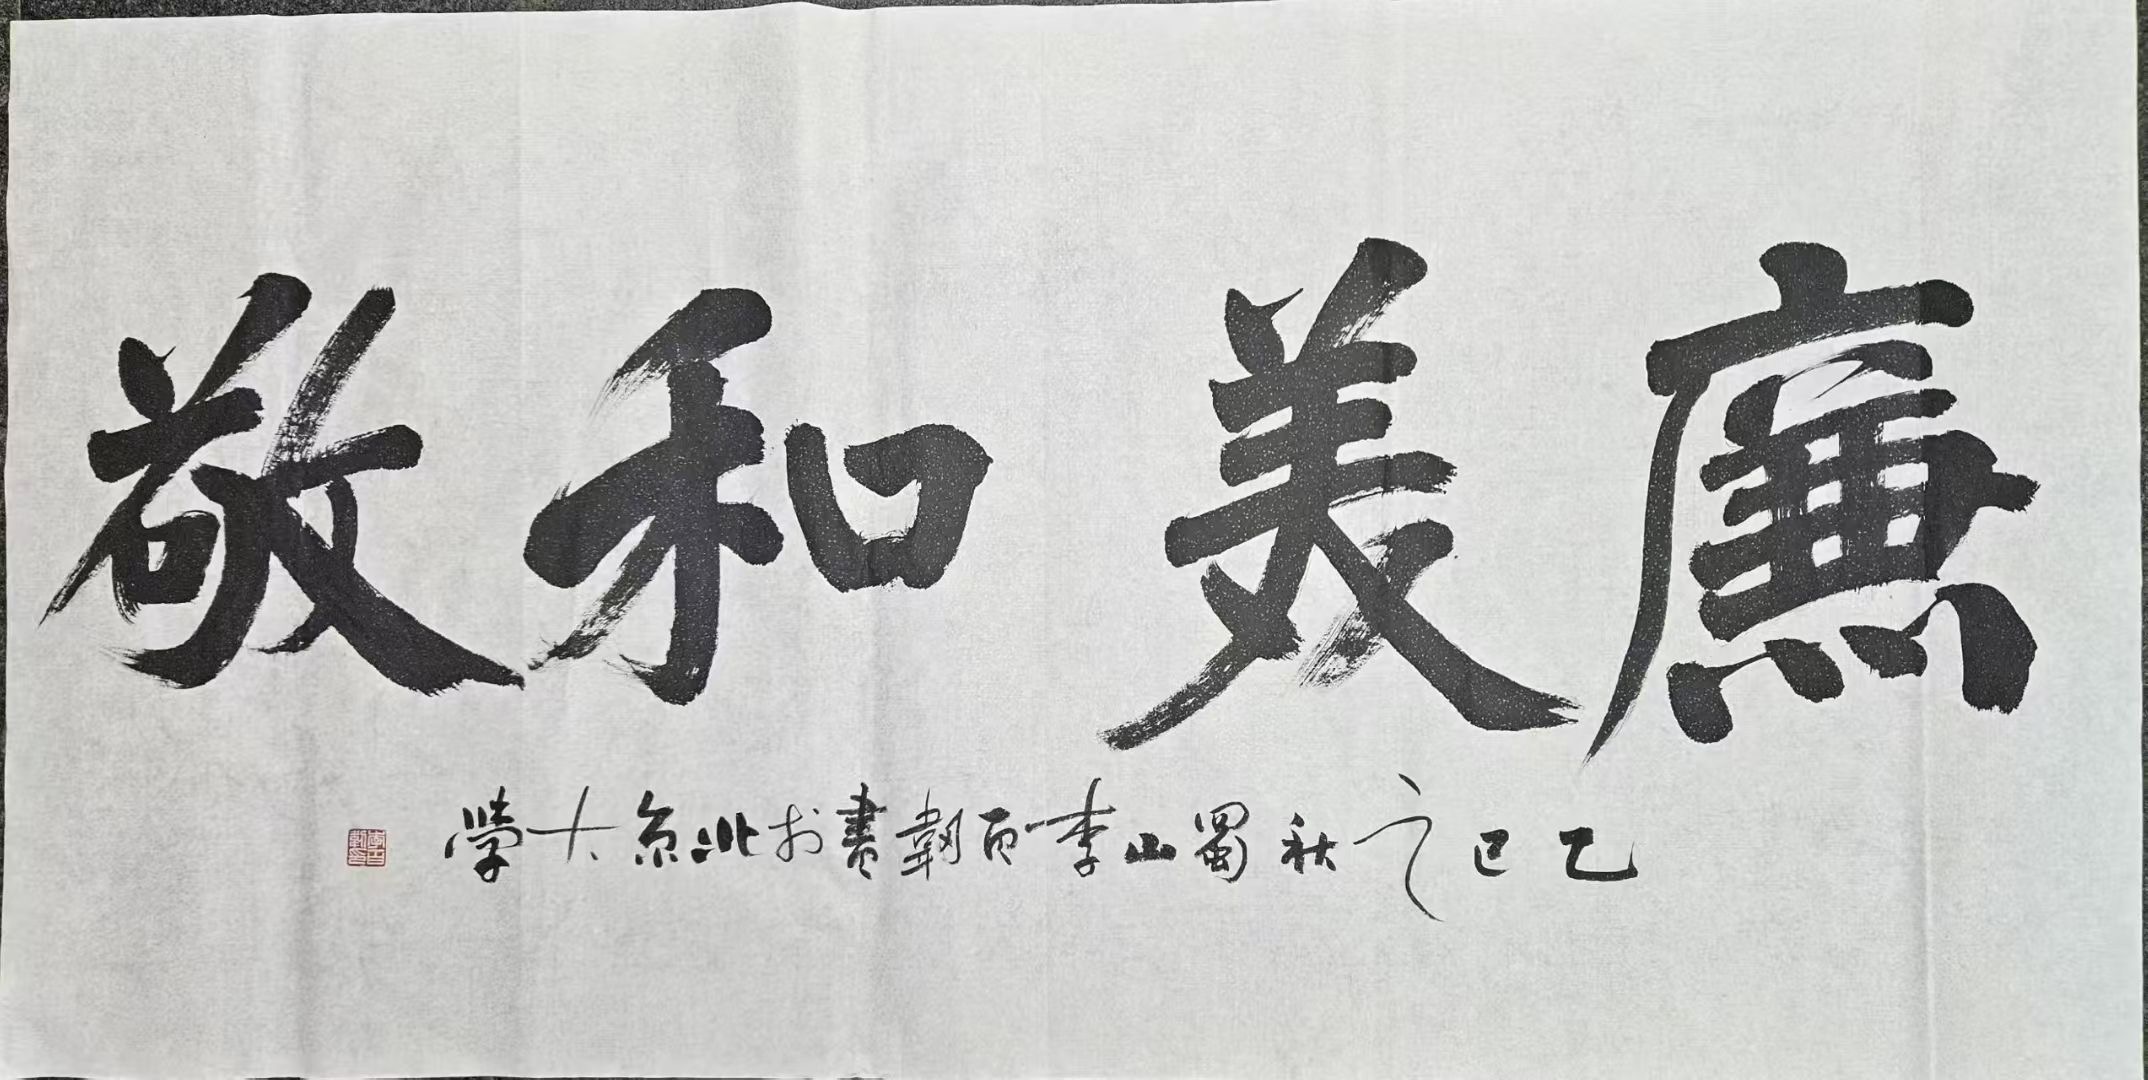 廉美和敬
乙巳之秋蜀山李百韌書於北京大學